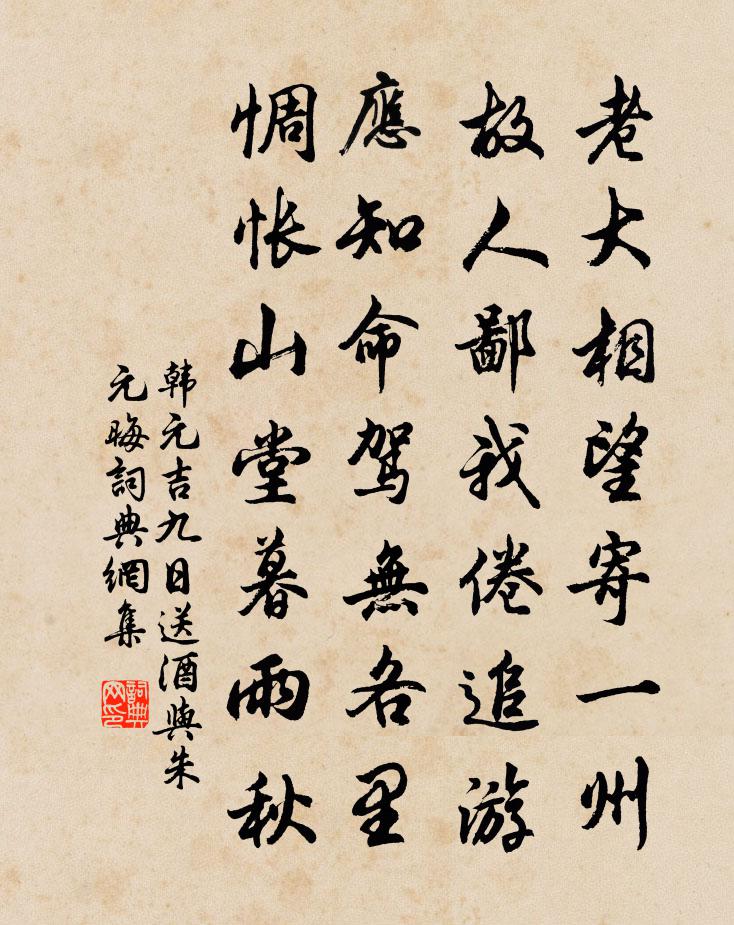 老大相望寄一州
故人鄙我倦追游
應知命驾無各里
惆怅山堂暮雨秋
韩元吉九日送酒與朱
元晦詞典網集
詞典网印